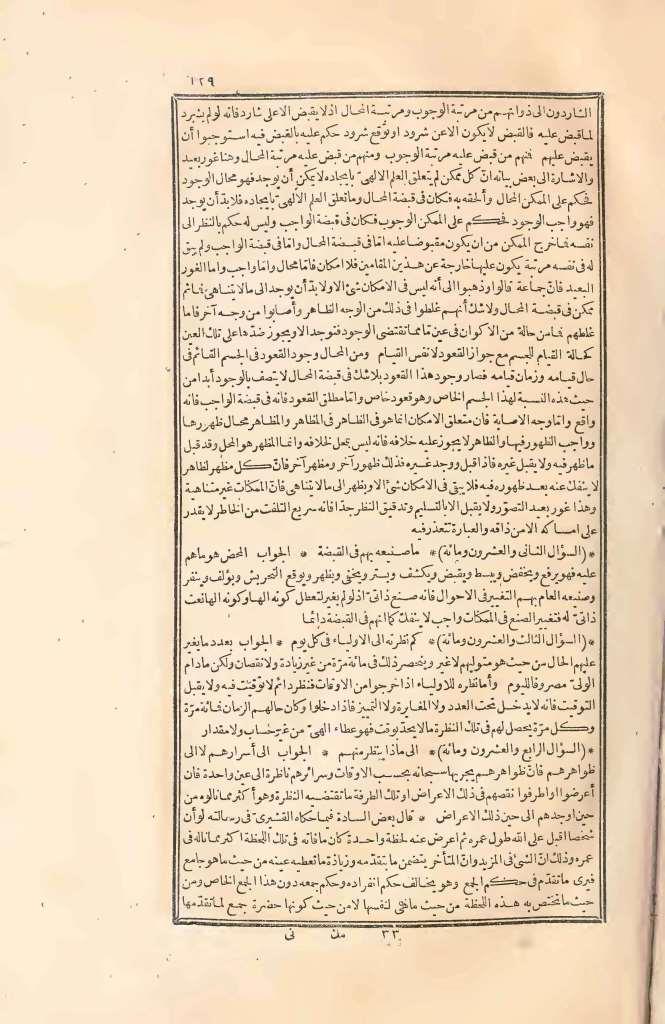 ١٢٩
الشاردون الى ذواتهم من مرتبة الوجوب ومرتبة المحال اذ لا يقبض الا على شارد فانه لو لم يشرد
لما قبض عليه فالقبض لا يكون الا عن شرود او توقع شرود حكم عليه بالقبض فيه استوجبوا أن
يقبض عليهم فنهم من قبض عليه مرتبة الوجوب ومنهم من قبض عليه مرتبة المحال وهنا غور بعيد
والاشارة الى بعض بيانه انّ كل ممكن لم يتعلق العلم الالهىّ بايجاده لا يمكن أن يوجد فهو محال الوجود
فحكم على الممكن المحال وألحقه به فكان فى قبضة المحال وما تعلق العلم الالهىّ بايجاده فلا بدّ أن يوجد
فهو واجب الوجود فحكم على الممكن الوجوب فكان فى قبضة الواجب وليس له حكم بالنظر الى
نفسه فما خرج الممكن من ان يكون مقبوضا عليه امّا فى قبضة المحال وامّا فى قبضة الواجب ولم يبق
له فى نفسه مرتبة يكون عليها خارجة عن هذين المقامين فلا امكان فامّا محال وامّا واجب واما الغور
البعيد فانّ جماعة قالوا وذهبوا الى أنه ليس فى الامكان شئ الا ولا بدّ أن يوجد الى ما لا يتناهى فما ثم
ممكن فى قبضة المحال ولا شك أنهم غلطوا فى ذلك من الوجه الظاهر وأصابوا من وجه آخر فاما
غلطهم فما من حالة من الاكوان فى عين تا مما تقتضى الوجود فتوجد الا ويجوز ضدّها على تلك العين
كحالة القيام للجسم مع جواز القعود لا نفس القيام ومن المحال وجود القعود فى الجسم القائم فى
حال قيامه وزمان قيامه فصار وجود هذا القعود بلا شك فى قبضة المحال لا يتصف بالوجود أبدا من
حيث هذه النسبة لهذا الجسم الخاص وهو قعود خاص وامّا مطلق القعود فانه فى قبضة الواجب فانه
واقع وامّا وجه الاصابة فان متعلق الامكان انما هو فى الظاهر فى المظاهر والمظاهر محال ظهورها
وواجب الظهور فيها والظاهر لا يجوز عليه خلافه فانه ليس بمحل لخلافه وانما المظهر هو المحل وقد قبل
ما ظهر فيه ولا يقبل غيره فاذا قبل ووجد غيره فذلك ظهور آخر ومظهر آخر فانّ كل مظهر لظاهر
لا ينفك عنه بعد ظهوره فيه فلا يبقى فى الامكان شئ الا ويظهر الى ما لا يتناهى فانّ الممكنات غير متناهية
وهذا غور بعيد التصوّر ولا يقبل الا بالتسليم وتدقيق النظر جدّا فانه سريع التفلت من الخاطر لا يقدر
على امساكه الا من ذاقه والعبارة تتعذر فيه
* (السؤال الثانى والعشرون ومائة) * ما صنيعه بهم فى القبضة * الجواب المحض هو ما هم
عليه فهو يرفع ويخفض ويبسط ويقبض ويكشف ويستر ويخفى ويظهر ويوقع التحريش ويؤلف وينفر
وصنيعه العام بهم التغيير فى الاحوال فانه صنع ذاتىّ اذ لو لم يغير لتعطل كونه الها وكونه الها نعت
ذاتىّ له فتغيير الصنع فى الممكنات واجب لا ينفك كما انهم فى القبضة دائما
* (السؤال الثالث والعشرون ومائة) * كم نظرته الى الاولياء فى كل يوم * الجواب بعدد ما يغير
عليهم الحال من حيث هو متوليهم لا غير وينحصر ذلك فى مائة مرّة من غير زيادة ولا نقصان ولكن ما دام
الولىّ مصروفا لليوم وأما نظره للاولياء اذا خرجوا من الاوقات فنظر دائم لا توقيت فيه ولا يقبل
التوقيت فانه لا يدخل تحت العدد ولا المغايرة ولا التمييز فاذا دخلوا وكان حالهم الزمان فمائة مرّة
وكل مرّة يحصل لهم فى تلك النظرة ما لا يحدّ بوقت فهو عطاء الهىّ من غير حساب ولا مقدار
* (السؤال الرابع والعشرون ومائة) * الى ماذا ينظر منهم * الجواب الى أسرارهم لا الى
ظواهرهم فانّ ظواهرهم يجريها سبحانه بحسب الاوقات وسرائرهم ناظرة الى عين واحدة فان
أعرضوا او اطرفوا نقصهم فى ذلك الاعراض او تلك الطرفة ما تقتضيه النظرة وهو أكثر مما نالوه من
حين اوجدهم الى حين ذلك الاعراض * قال بعض السادة فيما حكاه القشيرى فى رسالته لو أن
شخصا اقبل على الله طول عمره ثم اعرض عنه لحظة واحدة كان ما فاته فى تلك اللحظة اكثر مما ناله فى
عمره وذلك انّ الشئ فى المزيد وانّ المتأخر يتضمن ما يتقدّمه وزيادة ما تعطيه عينه من حيث ما هو جامع
فيرى ما تقدّم فى حكم الجمع وهو يخالف حكم انفراده وحكم جمعه دون هذا الجمع الخاص ومن
حيث ما تختص به هذه اللحظة من حيث ما هى لنفسها لا من حيث كونها حضرة جمع لما تقدّمها
٣٣ مك نى